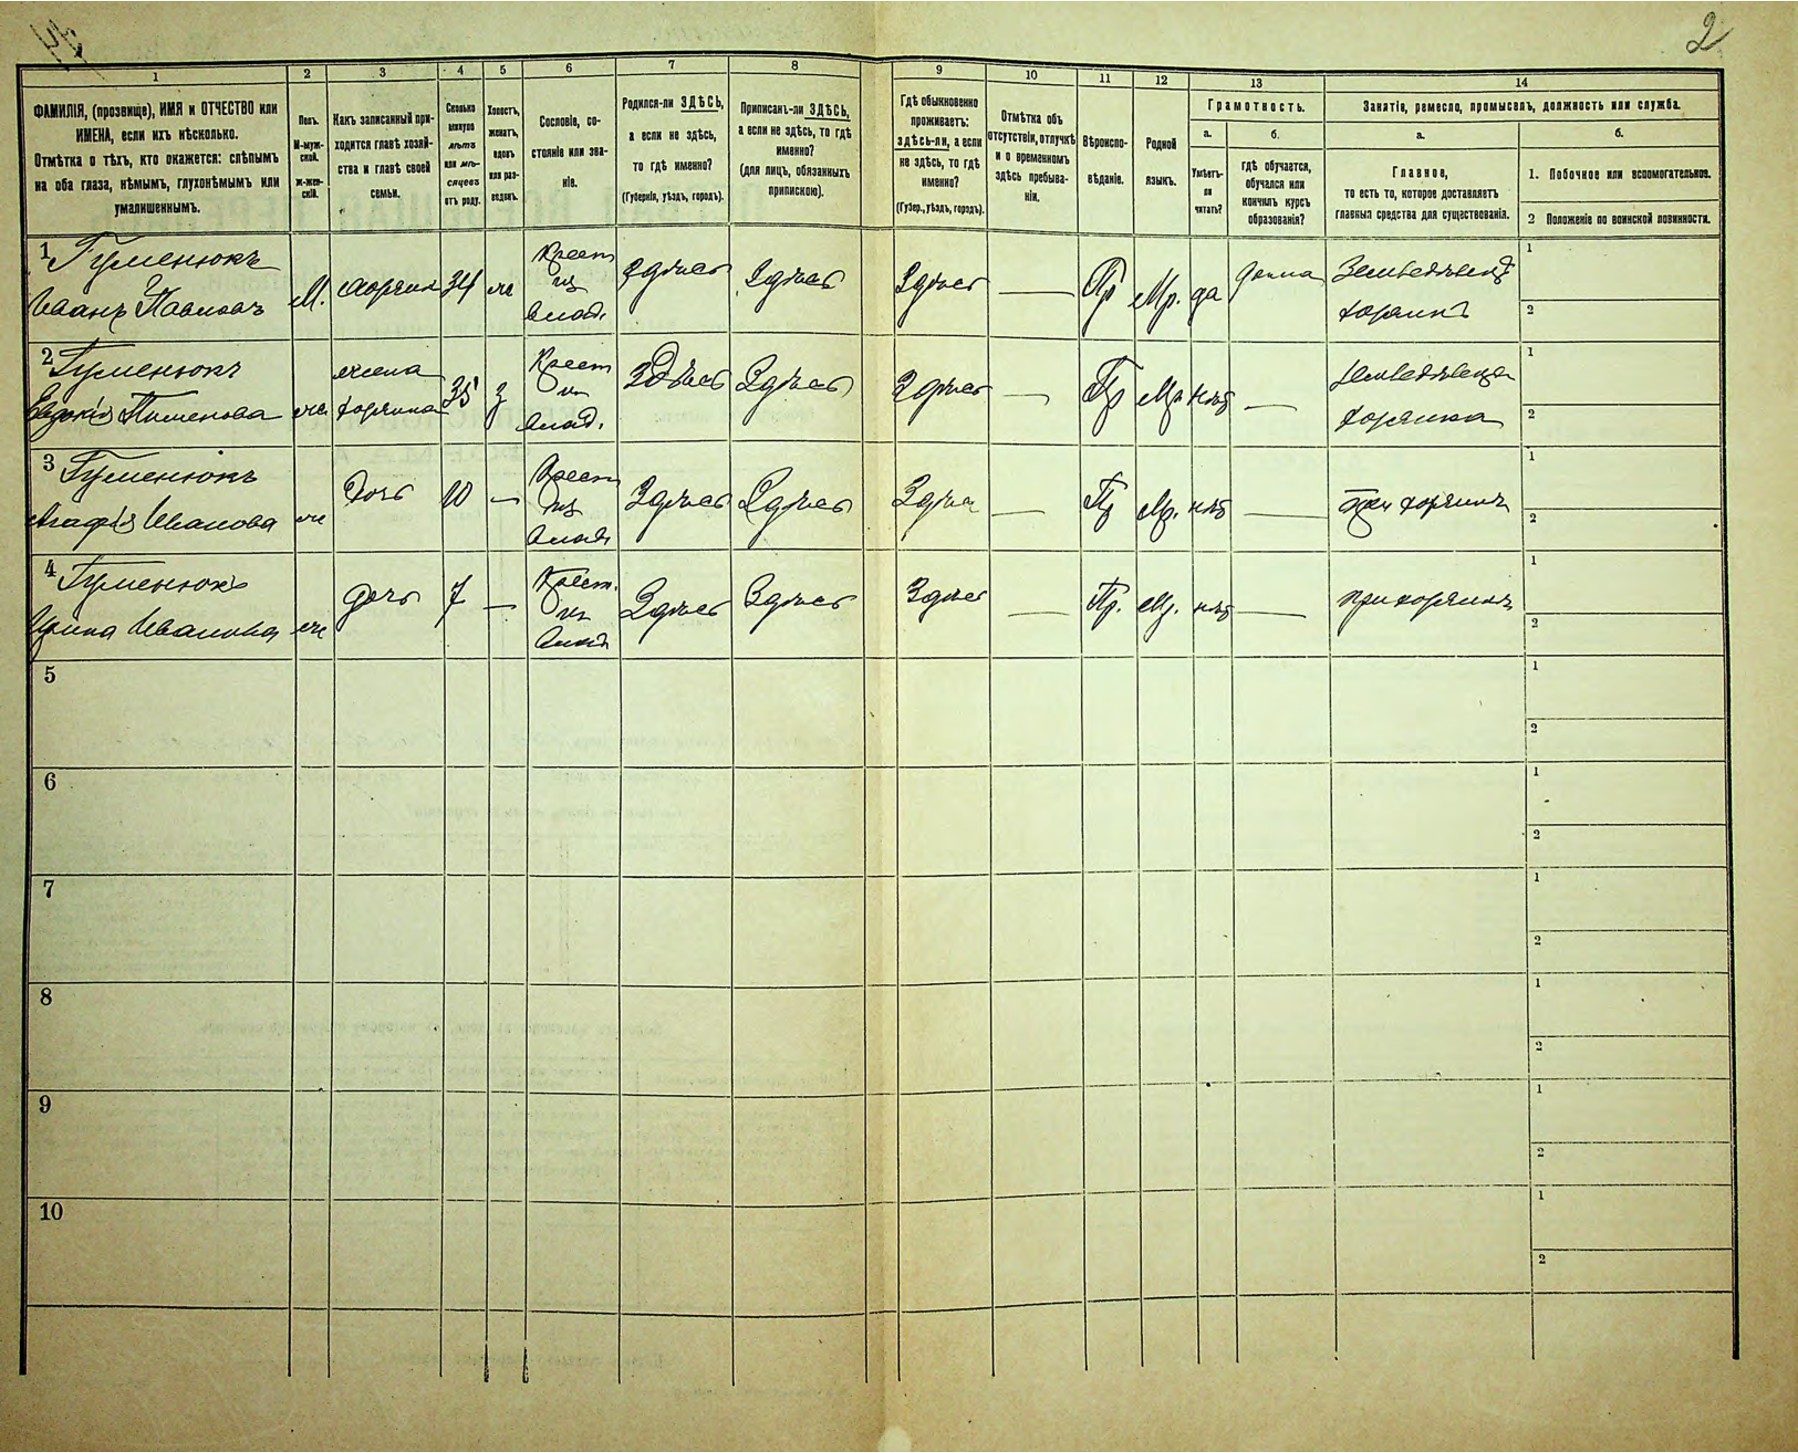 2
1
2
3
4
5
6
7
8
9
10
11
12
13
14
ФАМИЛІЯ, (прозвище), ИМЯ и ОТЧЕСТВО или
ИМЕНА, если ихъ нѣсколько.
Отмѣтка о тѣхъ, кто окажется: слѣпымъ
на оба глаза, нѣмымъ, глухонѣмымъ или
умалишеннымъ.
Полъ.
М-муж-
ской.
ж-жен-
скій.
Какъ записанный при-
ходится главѣ хозяй-
ства и главѣ своей
семьи.
Сколько
минуло
лѣтъ
или мѣ-
сяцевъ
отъ роду.
Холостъ,
женатъ,
вдовъ
или раз-
веденъ.
Сословіе, со-
стояніе или зва-
ніе.
Родился-ли ЗДѢСЬ,
а если не здѣсь,
то гдѣ именно?
(Губернія, уѣздъ, городъ).
Приписанъ-ли ЗДѢСЬ,
а если не здѣсь, то гдѣ
именно?
(для лицъ, обязанныхъ
припискою).
Гдѣ обыкновенно
проживаетъ:
здѣсь-ли, а если
не здѣсь, то гдѣ
именно?
(Губер., уѣздъ, городъ).
Отмѣтка объ
отсутствіи, отлучкѣ
и о временномъ
здѣсь пребыва-
ніи.
Вѣроиспо-
вѣданіе.
Родной
языкъ.
Грамотность.
а.
Умѣетъ-
ли
читать?
б.
гдѣ обучается,
обучался или
кончилъ курсъ
образованія?
Занятіе, ремесло, промыселъ, должность или служба.
а.
Главное,
то есть то, которое доставляетъ
главныя средства для существованія.
б.
1. Побочное или вспомогательное.
2 Положеніе по воинской повинности.
1
Гуменюкъ
Иванъ Павловъ
М.
хозяинъ
34
ж
Крест
из
влад.
Здѣсь
Здѣсь
Здѣсь
—
Пр
Мр.
да
дома
Земледѣлецъ
хозяинъ
1
2
2
Гуменюкъ
Евдокія Пименова
ж
жена
хозяина
35
з
Крест
из
влад.
Здѣсь
Здѣсь
Здѣсь
—
Пр
Мр
нѣтъ
—
земледѣлица
хозяйка
1
2
3
Гуменюкъ
Агафія Иванова
ж
Дочь
10
—
Крест
из
влад
Здѣсь
Здѣсь
Здѣсь
—
Пр
Мр.
нѣтъ
—
при хозяинѣ
1
2
4
Гуменюкъ
Ирина Иванова
ж
дочь
7
—
Крест.
из
влад
Здѣсь
Здѣсь
Здѣсь
—
Пр.
Мр.
нѣтъ
—
при хозяинѣ
1
2
5
1
2
6
1
2
7
1
2
8
1
2
9
1
2
10
1
2